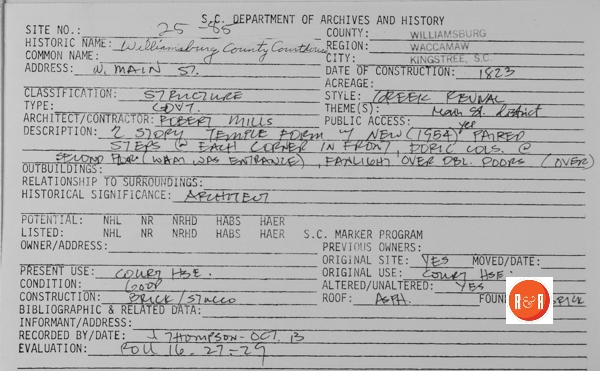 S.C. DEPARTMENT OF ARCHIVES AND HISTORY
SITE NO.: 25-85 COUNTY: WILLIAMSBURG
HISTORIC NAME: Williamsburg County Courthouse REGION: WACCAMAW
COMMON NAME: CITY: KINGSTREE, S.C.
ADDRESS: N. MAIN ST. DATE OF CONSTRUCTION: 1823
ACREAGE:
CLASSIFICATION: STRUCTURE STYLE: GREEK REVIVAL
TYPE: GOVT. THEME(S): Main St. District
ARCHITECT/CONTRACTOR: ROBERT MILLS PUBLIC ACCESS: yes
DESCRIPTION: 2 STORY TEMPLE FORM W/ NEW (1954) PAIRED
STEPS @ EACH CORNER IN FRONT, DORIC COLS. @
SECOND FLOOR (WHICH WAS ENTRANCE), FANLIGHT OVER DBL. DOORS (OVER)
OUTBUILDINGS:
RELATIONSHIP TO SURROUNDINGS:
HISTORICAL SIGNIFICANCE: ARCHITECT
POTENTIAL: NHL NR NRHD HABS HAER
LISTED: NHL NR NRHD HABS HAER S.C. MARKER PROGRAM
OWNER/ADDRESS: PREVIOUS OWNERS:
ORIGINAL SITE: YES MOVED/DATE:
PRESENT USE: COURT HSE. ORIGINAL USE: COURT HSE.
CONDITION: GOOD ALTERED/UNALTERED: YES
CONSTRUCTION: BRICK/STUCCO ROOF: ASPH. FOUN BRICK
BIBLIOGRAPHIC & RELATED DATA:
INFORMANT/ADDRESS:
RECORDED BY/DATE: J THOMPSON - OCT.
EVALUATION: ROLL 16. 27-29
R&R